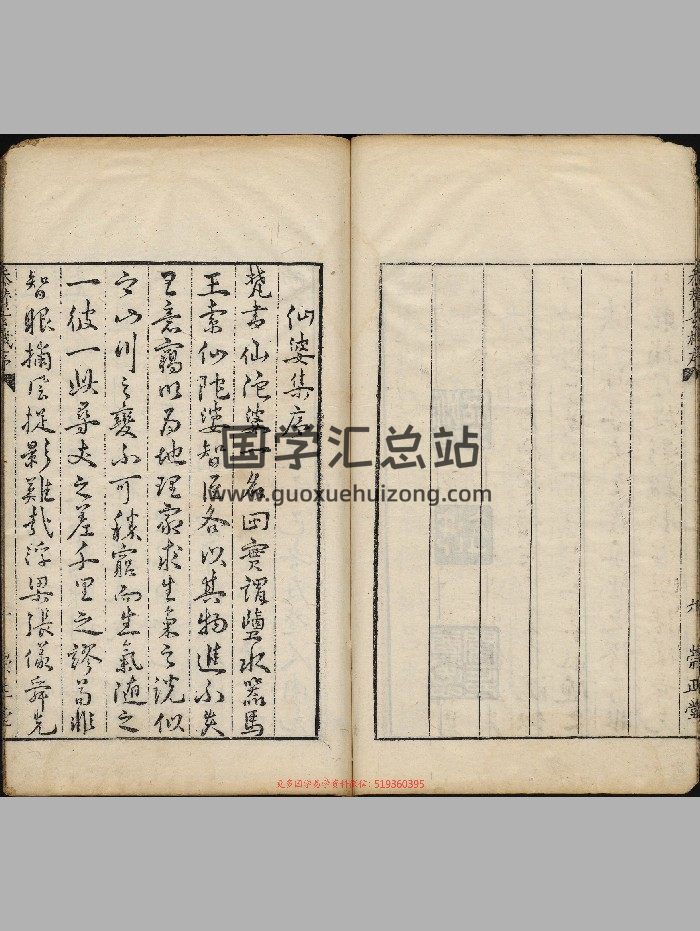 仙婆集序
梵書仙陀婆一名四實謂鹽水器馬
王索仙陀婆智臣各以其物進不失
王意竊以為地理家求生氣之說似
之山川之變不可穪窮而生氣隨之
一彼一此毫之差千里之謬苟非
智眼捕風捉影難哉浮梁張儀舜兄
崇正堂
国学汇总站
www.guoxuehuizong.com
更多国学易学资料微信：519360395